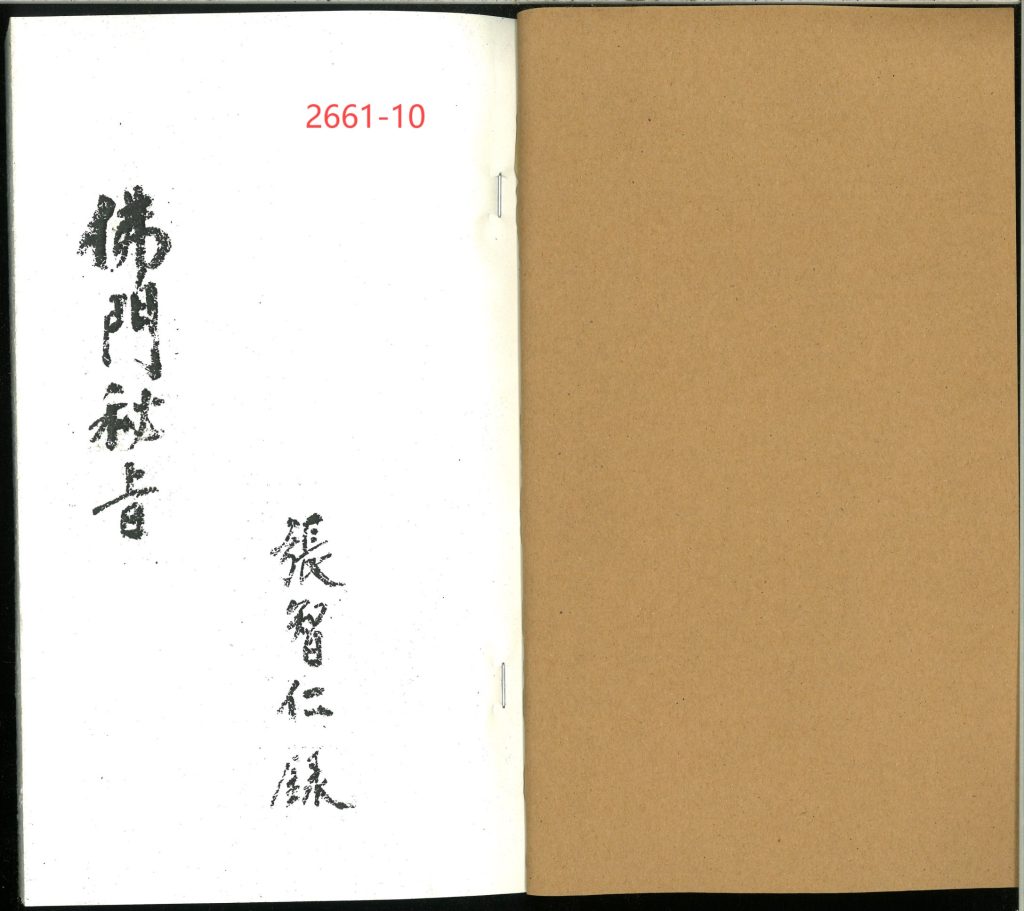 2661-10
張智仁録
佛門秘旨